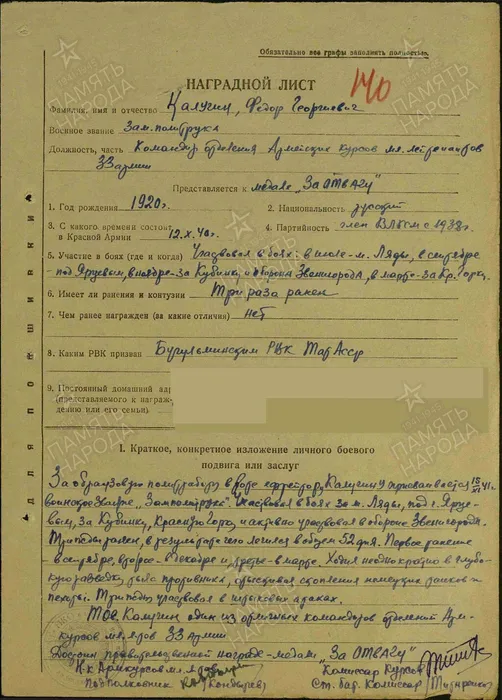 Обязательно все графы заполнять полностью.
НАГРАДНОЙ ЛИСТ
140
Фамилия, имя и отчество Калугин, Федор Георгиевич
Военное звание Зам. политрука
Должность, часть Командир отделения Армейских курсов мл. лейтенантов
33 армии
Представляется к медаль "За ОТВАГУ"
1. Год рождения 1920 г. 2. Национальность русский
3. С какого времени состоит в Красной Армии 12.X.40 г. 4. Партийность член ВЛКСМ с 1938 г.
5. Участие в боях (где и когда) Участвовал в боях: в июле - м. Ляды, в сентябре
под Ярцевым, в ноябре - за Кубинку и оборона Звенигорода, в марте - за Кр. Горки.
6. Имеет ли ранения и контузии Три раза ранен
7. Чем ранее награжден (за какие отличия) нет
8. Каким РВК призван Бугульминским РВК ТатАССР
9. Постоянный домашний адр
(представляемого к награж
дению или его семьи)
для подшивки
I. Краткое, конкретное изложение личного боевого
подвига или заслуг
За образцовую политработу в роте ефрейтору Калугину присваивается
воинское звание "Замполитрука". Участвовал в боях за м. Ляды, под г. Ярце-
вым, за Кубинку, Красную Горку и активно участвовал в обороне Звенигорода.
Три раза ранен, в результате чего лечился в общем 52 дня. Первое ранение
в сентябре, второе - в декабре и третье - в марте. Ходил неоднократно в глубо-
кую разведку тыла противника, отыскивая скопления немецких танков и
пехоты. Три раза участвовал в штыковых атаках.
Тов. Калугин один из отличных командиров отделений Арм-
курсов мл. л-тов 33 Армии.
Достоин правительственной награды - медали "За ОТВАГУ"
Н-к Армкурсов мл. л-тов
Подполковник
Комиссар Курсов
Ст. бат. Комиссар
ПАМЯТЬ
НАРОДА
ПАМЯТЬ
НАРОДА
ПАМЯТЬ
НАРОДА
ПАМЯТЬ
НАРОДА